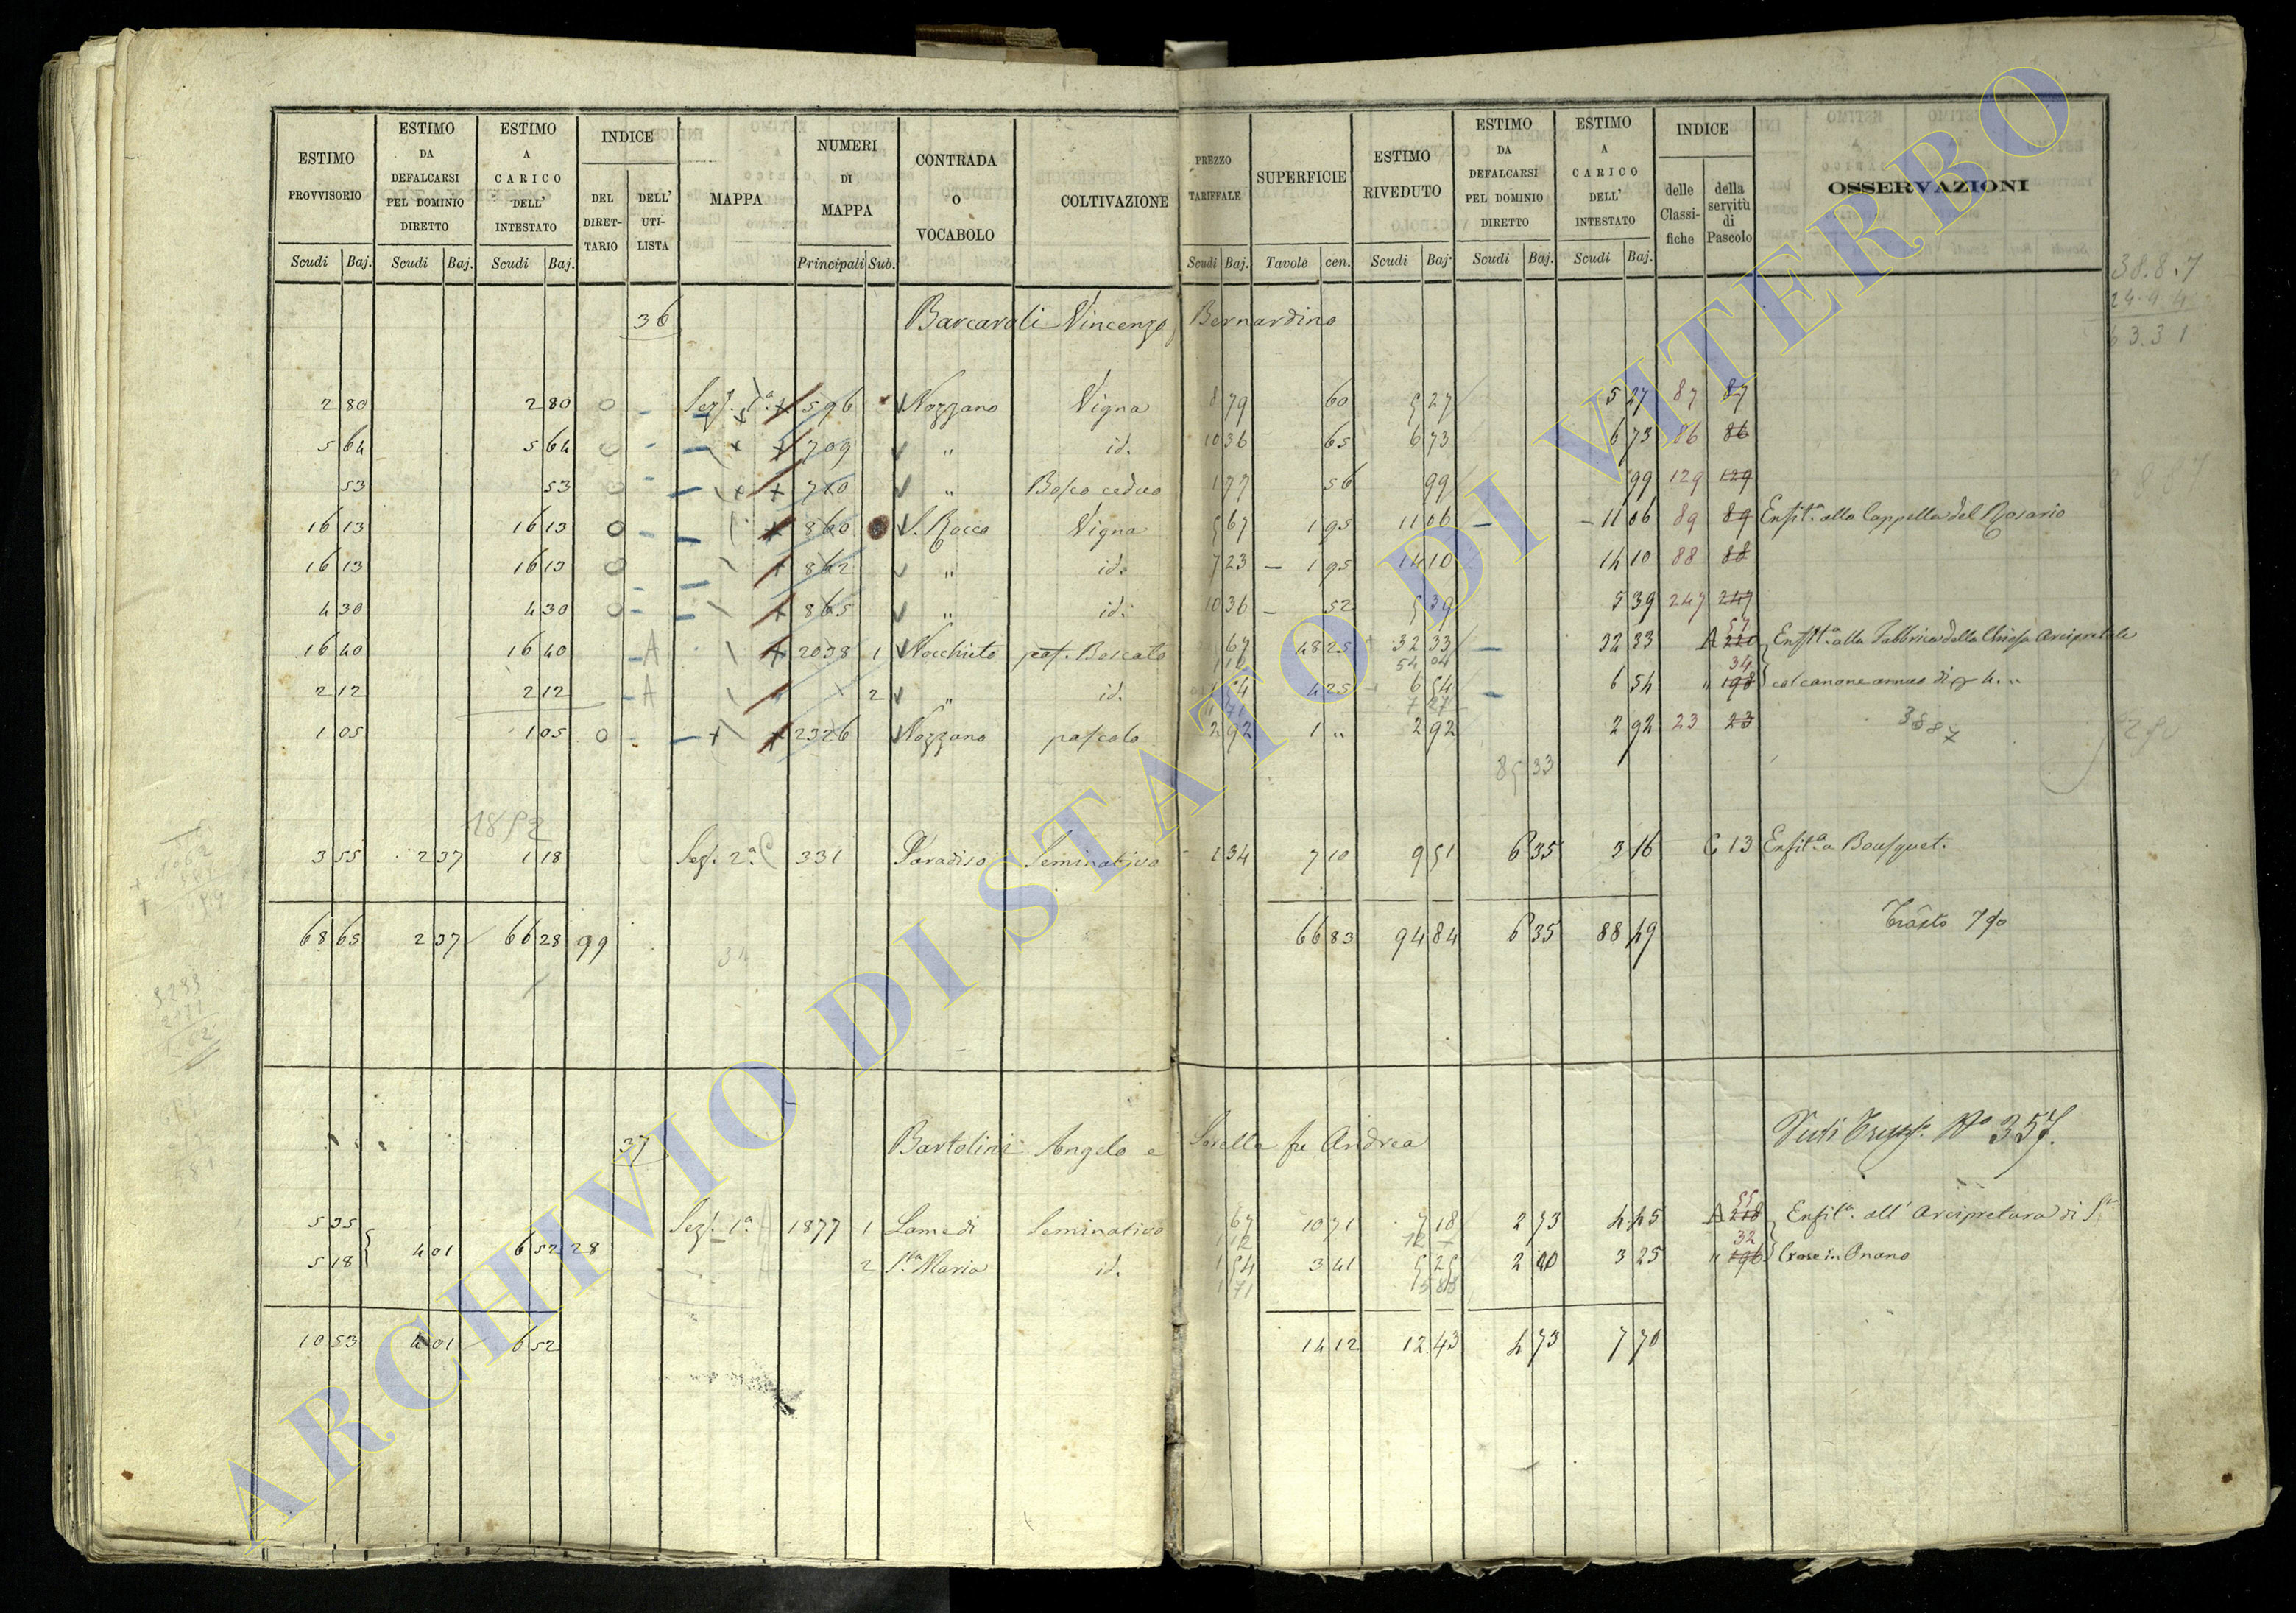 ESTIMO PROVVISORIO ESTIMO DA DEFALCARSI PEL DOMINIO DIRETTO ESTIMO A CARICO DELL' INTESTATO INDICE DEL DIRET-TARIO DELL' UTI-LISTA MAPPA NUMERI DI MAPPA CONTRADA O VOCABOLO COLTIVAZIONE PREZZO TARIFFALE SUPERFICIE ESTIMO RIVEDUTO ESTIMO DA DEFALCARSI PEL DOMINIO DIRETTO ESTIMO A CARICO DELL' INTESTATO INDICE delle Classi-fiche della servitù di Pascolo OSSERVAZIONI
Scudi Baj. Scudi Baj. Scudi Baj. Principali Sub. Scudi Baj. Tavole cen. Scudi Baj. Scudi Baj. Scudi Baj.
38.8.7
63.31
36 Barcaroli Vincenzo Bernardino
2 80 2 80 Sez. 1ª 596 Nozzano Vigna 8 79 60 5 27 5 27 87 87
5 64 5 64 709 " id. 10 36 65 6 73 6 73 86 86
53 53 710 " Bosco ceduo 1 77 56 99 99 129 129
16 13 16 13 860 S. Rocco Vigna 5 67 1 95 11 06 11 06 89 89 Enfit.ª alla Cappella del Rosario
16 13 16 13 862 " id. 7 23 1 95 14 10 14 10 88 88
4 30 4 30 865 " id. 10 36 52 5 39 5 39 247 247
16 40 16 40 A 2038 1 Nocchieto past. Boscato 67 48 25 32 33 32 33 A 220 57 Enfit.ª alla Fabbrica della Chiesa Arcipretale
2 12 2 12 A 2 " id. 1 54 4 25 6 54 6 54 " 198 34 col canone annuo di
1 05 1 05 2326 Nozzano pascolo 2 92 1 " 2 92 2 92 23 23
85 33
3887
1892
3 55 2 37 1 18 Sez. 2ª C 331 Paradiso Seminativo 1 34 7 10 9 51 6 35 3 16 C 13 Enfit.ª a Bousquet.
68 65 2 37 66 28 99 66 83 94 84 6 35 88 49
37 Bartolini Angelo e Sorella fu Andrea
N° 357.
5 35 4 01 6 52 28 Sez. 1ª 1877 1 Lamedi Seminativo 67 10 71 7 18 2 73 4 45 A 218 55 Enfit.ª all' Arcipretura di S.
5 18 2 S.ta Maria id. 1 54 3 41 5 25 2 00 3 25 " 196 32 Croce in Onano
1 71
10 53 4 01 6 52 14 12 12 43 4 73 7 70
ARCHIVIO DI STATO DI VITERBO